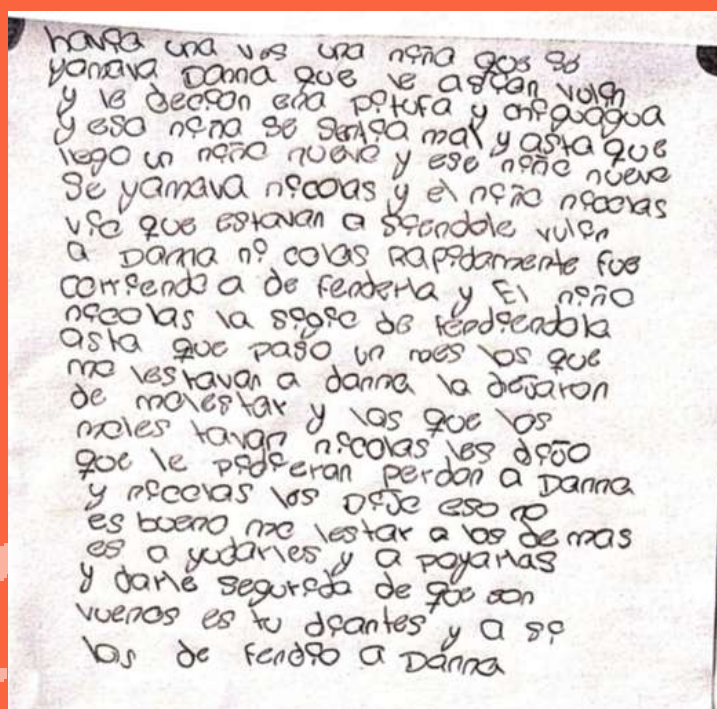 havía una vos una niña que se
yamava Danna que le asían vulin
y le decían ena pitufa y chiguagua
y esa niña se sentía mal y asta que
llego un niño nuevo y ese niño nuevo
se yamava nicolas y el niño nicolas
vio que estavan a siendole vulin
a Danna ni colas Rapidamente fue
corriendo a de fenderla y El niño
nicolas la sigio de fendiendola
asta que paso un mes los que
mo lestavan a danna la dejaron
de molestar y las que los
moles tavan nicolas les dijo
que le pidieran perdon a Danna
y nicolas los Dijo eso no
es bueno mo lestar a los de mas
es a yudarles y a poyarlas
y darle segurida de que son
vuenos es tu diantes y a si
los de fendio a Danna